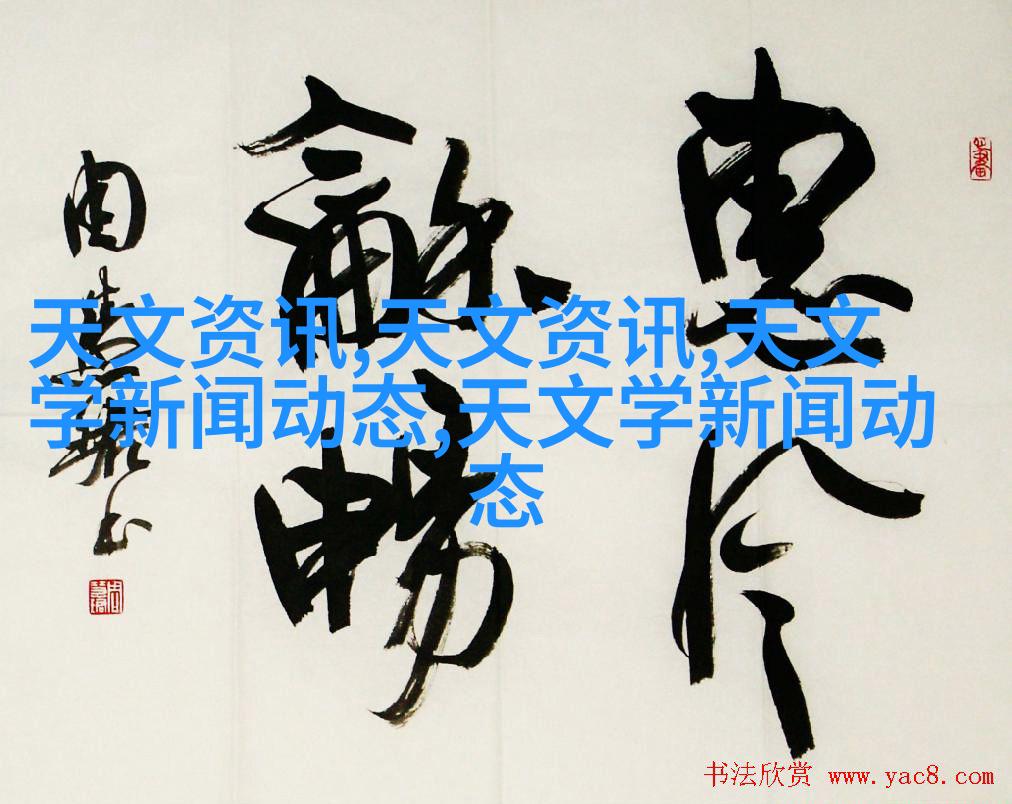 惠風
龢暢
周慧珺书
天文资讯,天文资讯,天文
学新闻动态,天文学新闻动
态
书法欣赏 www.yac8.com